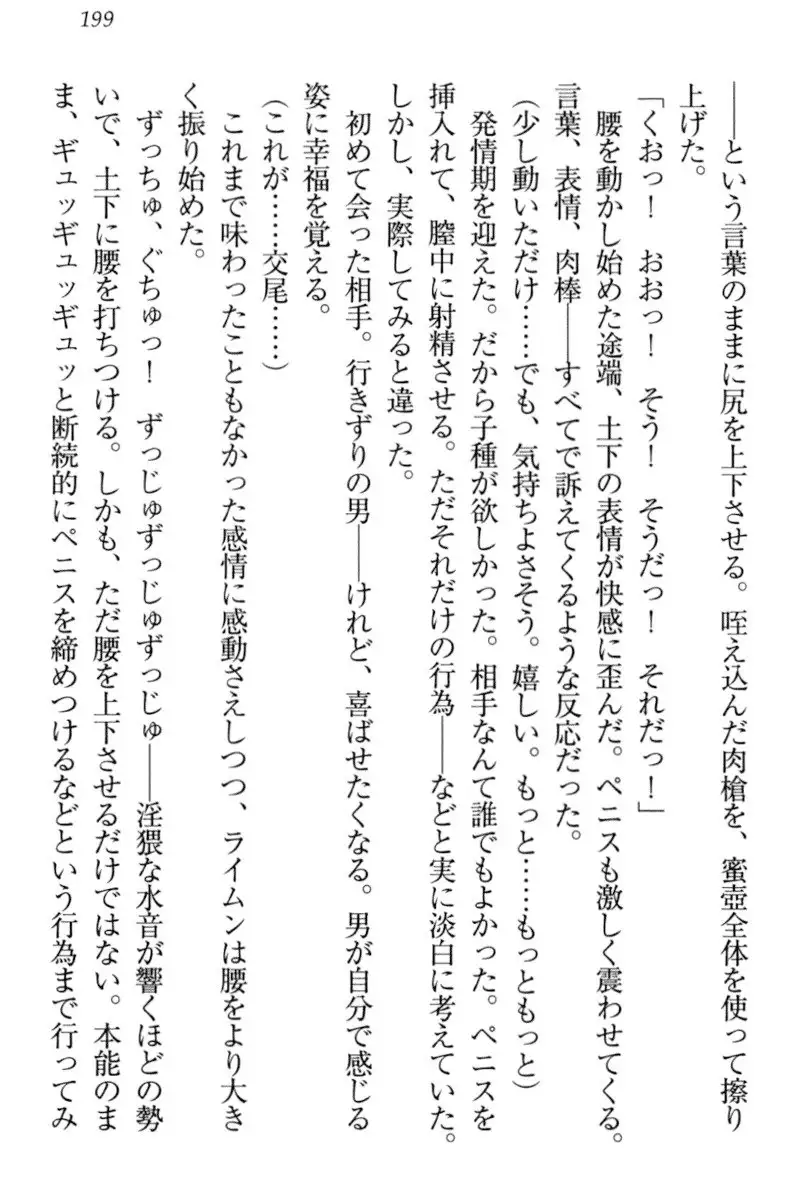 199
――という言葉のままに尻を上下させる。咥え込んだ肉槍を、蜜壺全体を使って擦り
上げた。
「くおっ！　おおっ！　そう！　そうだっ！　それだっ！」
腰を動かし始めた途端、土下の表情が快感に歪んだ。ペニスも激しく震わせてくる。
言葉、表情、肉棒――すべてで訴えてくるような反応だった。
（少し動いただけ……でも、気持ちよさそう。嬉しい。もっと……もっともっと）
発情期を迎えた。だから子種が欲しかった。相手なんて誰でもよかった。ペニスを
挿入れて、膣中に射精させる。ただそれだけの行為――などと実に淡白に考えていた。
しかし、実際してみると違った。
初めて会った相手。行きずりの男――けれど、喜ばせたくなる。男が自分で感じる
姿に幸福を覚える。
（これが……交尾……）
これまで味わったこともなかった感情に感動さえしつつ、ライムンは腰をより大き
く振り始めた。
ずっちゅ、ぐちゅっ！　ずっじゅずっじゅずっじゅ――淫猥な水音が響くほどの勢
いで、土下に腰を打ちつける。しかも、ただ腰を上下させるだけではない。本能のま
ま、ギュッギュッギュッと断続的にペニスを締めつけるなどという行為まで行ってみ